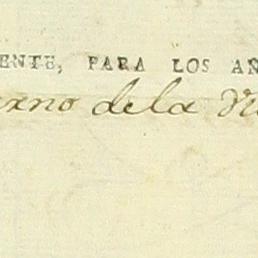 ENTE, PARA LOS AÑ
erno de la